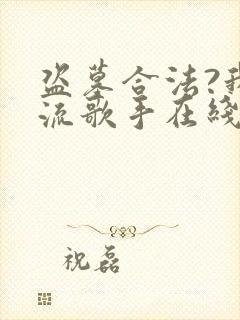 盗墓合法?我
流歌手在线
祝磊